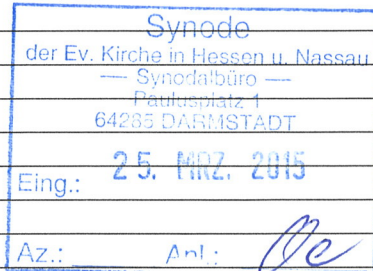 Synode
der Ev. Kirche in Hessen u. Nassau
— Synodalbüro —
Paulusplatz 1
64285 DARMSTADT
Eing.: 25. MRZ. 2015
Az.: Anl.: